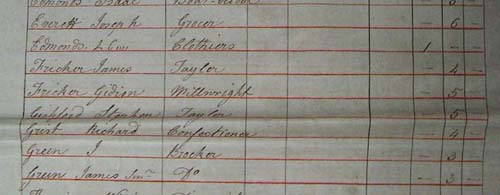 Edmonds Isaac
Everett Joseph Grocer — 6 —
Edmonds & Con Clothiers 1 — —
Fricker James Taylor — 4 —
Fricker Gidion Millwright — 5 —
Guppford Stephen Taylor — 5 —
Grist Richard Confectioner — 4 —
Green J Brocker — 3 —
Green James Senr Do — 3 —